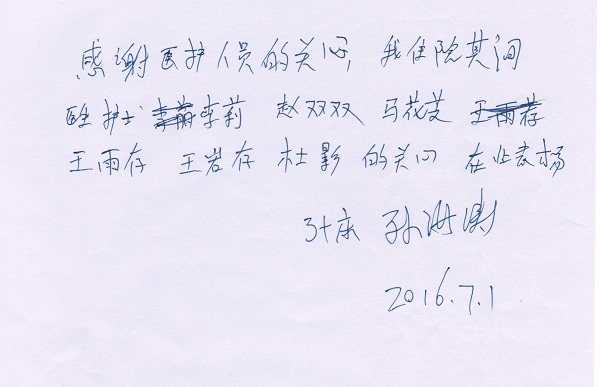 感谢医护人员的关心, 我住院其间
医生护士 李莉 赵双双 马花芝
王雨存 王岩存 杜影 的关心 在此表扬
31床 孙
2016.7.1